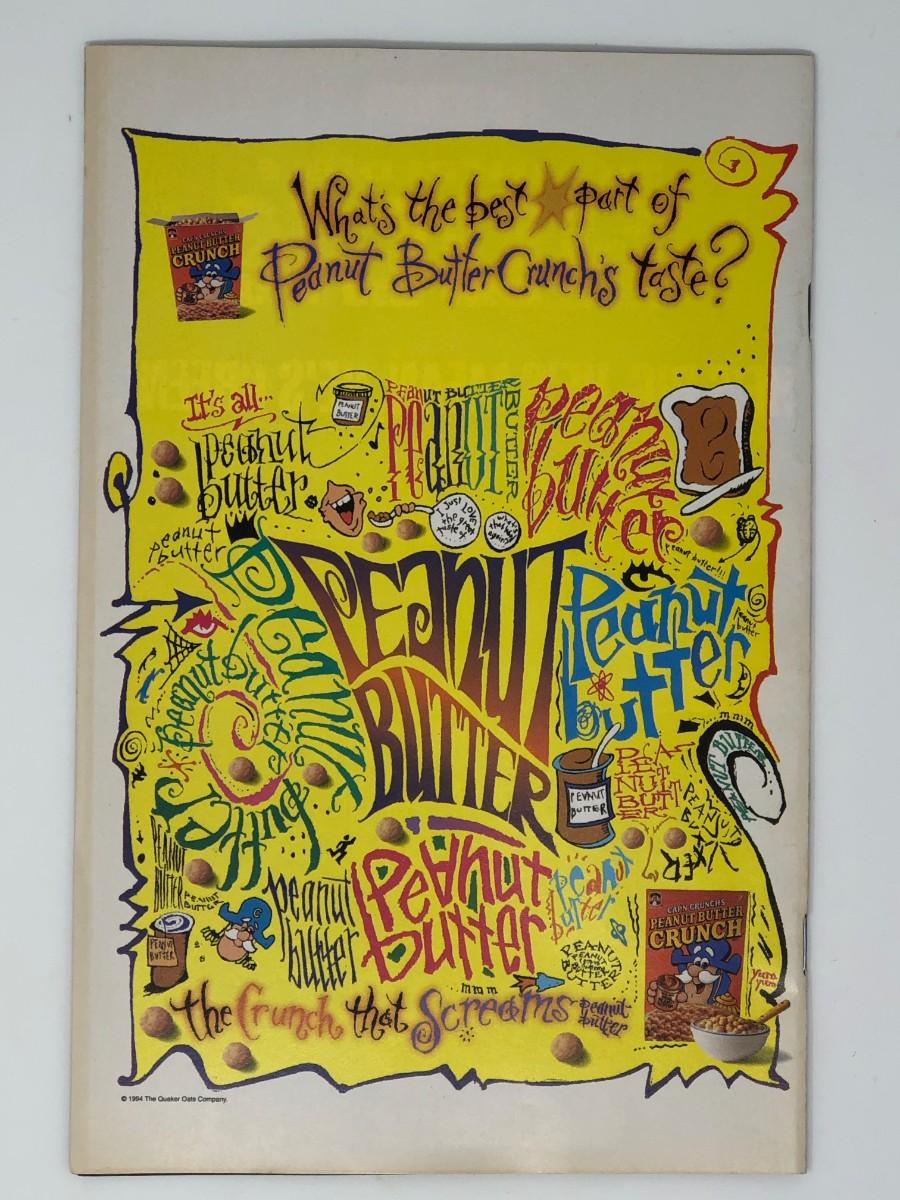 What's the best part of
Peanut Butter Crunch's taste?
CAP'N CRUNCH'S
PEANUT BUTTER
CRUNCH
It's all...
peanut
butter
PEANUT
BUTTER
PEANUT BUTTER
PEANUT
BUTTER
Peanut
butter
I just LOVE
the great
taste of
what's
that taste
again?
peanut
butter
peanut butter!!!
PEANUT
BUTTER
Peanut
butter
Peanut
butter
Peanut
butter
Peanut Butter
mmm
PEANUT BUTTER
PEANUT
BUTTER
PEA
NUT
BUTT
ER
PEANUT
BUTTER
PEANUT
BUTTER
PEANUT
BUTTER
peanut
butter
Peanut
butter
Peanut
butter
PEANUT
BUTTER
C
PEANUT
BUTTER
mmm
CAP'N CRUNCH'S
PEANUT BUTTER
CRUNCH
yum
yum
the Crunch that Screams peanut
butter
© 1994 The Quaker Oats Company.